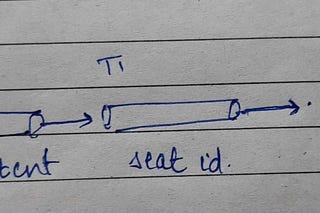 T1
tent seat id.